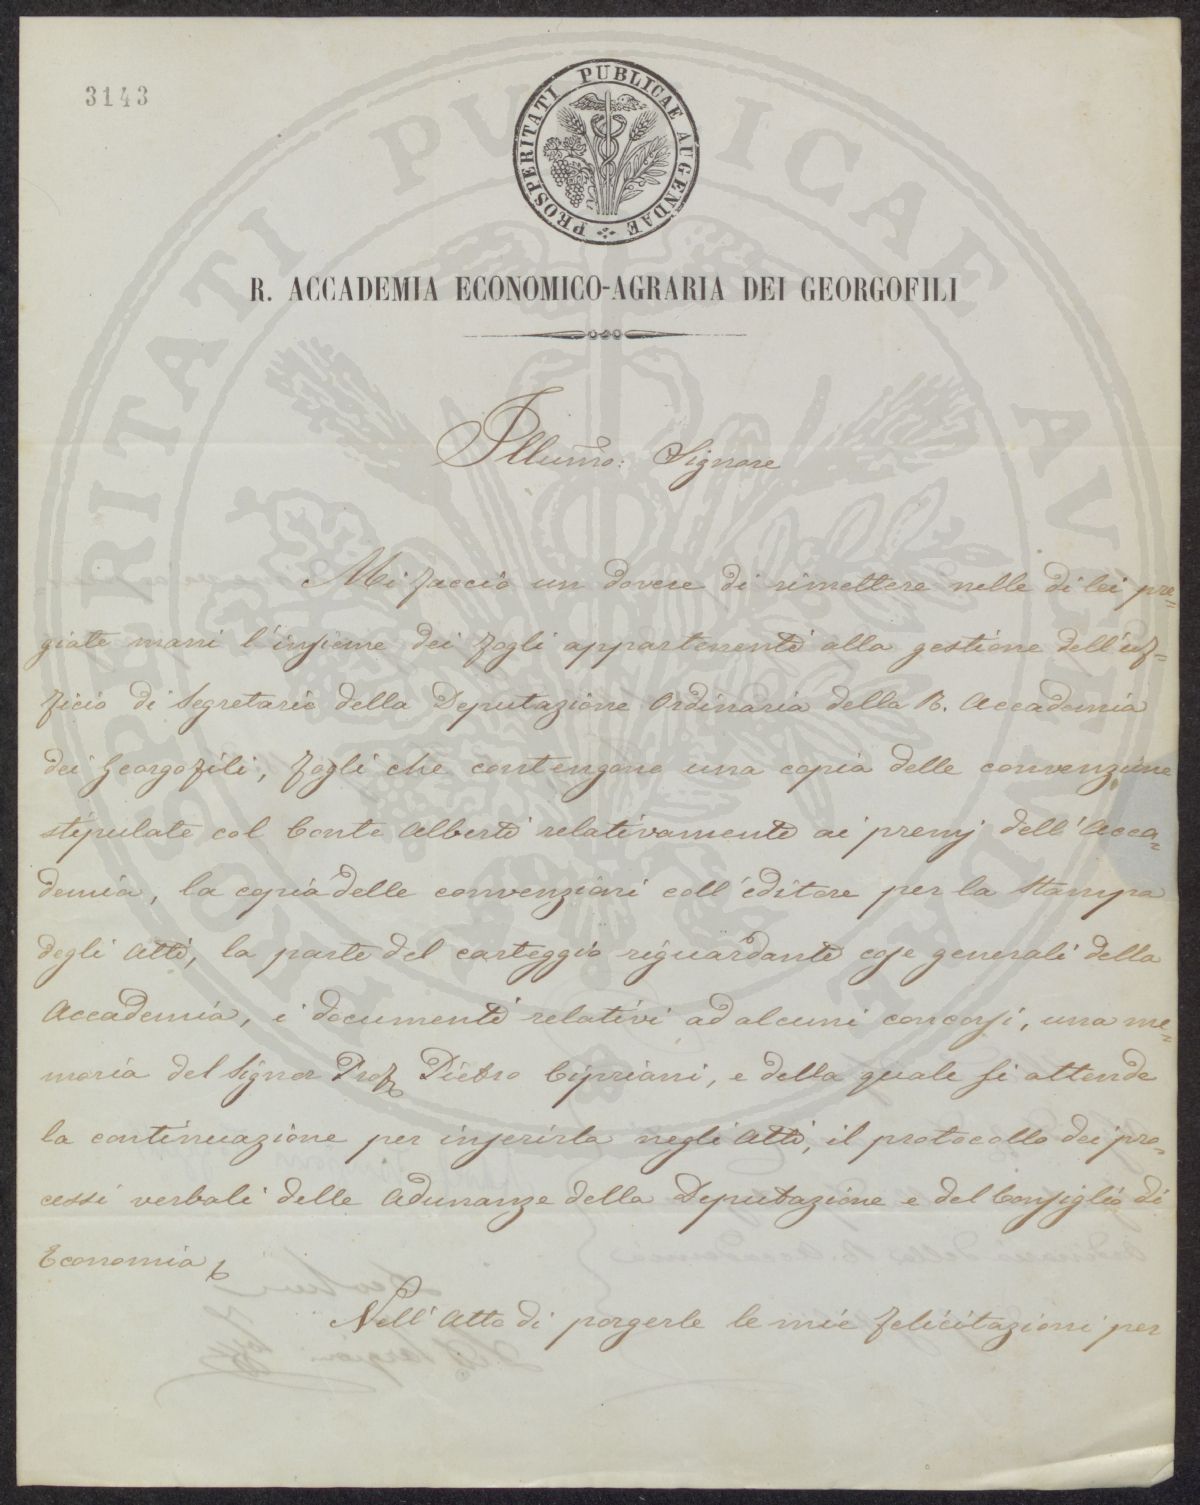 3143
PROSPERITATI PUBLICAE AUGENDAE
R. ACCADEMIA ECONOMICO-AGRARIA DEI GEORGOFILI
Illumo: Signore
Mi faccio un dovere di rimettere nelle di lei pre=
giate mani l'insieme dei fogli appartenenti alla gestione dell'uf=
ficio di Segretario della Deputazione Ordinaria della R. Accademia
dei Georgofili, fogli che contengono una copia delle convenzione
stipulate col Conte Alberti relativamente ai premj dell'Acca=
demia, la copia delle convenzioni coll'editore per la Stampa
degli Atti, la parte del carteggio riguardante cose generali della
Accademia, i documenti relativi ad alcuni concorsi, una me=
moria del Signor Prof. Pietro Cipriani, e della quale si attende
la continuazione per inserirla negli Atti, il protocollo dei pro=
cessi verbali delle Adunanze della Deputazione e del Consiglio di
Economia.
Nell'Atto di porgerle le mie felicitazioni per